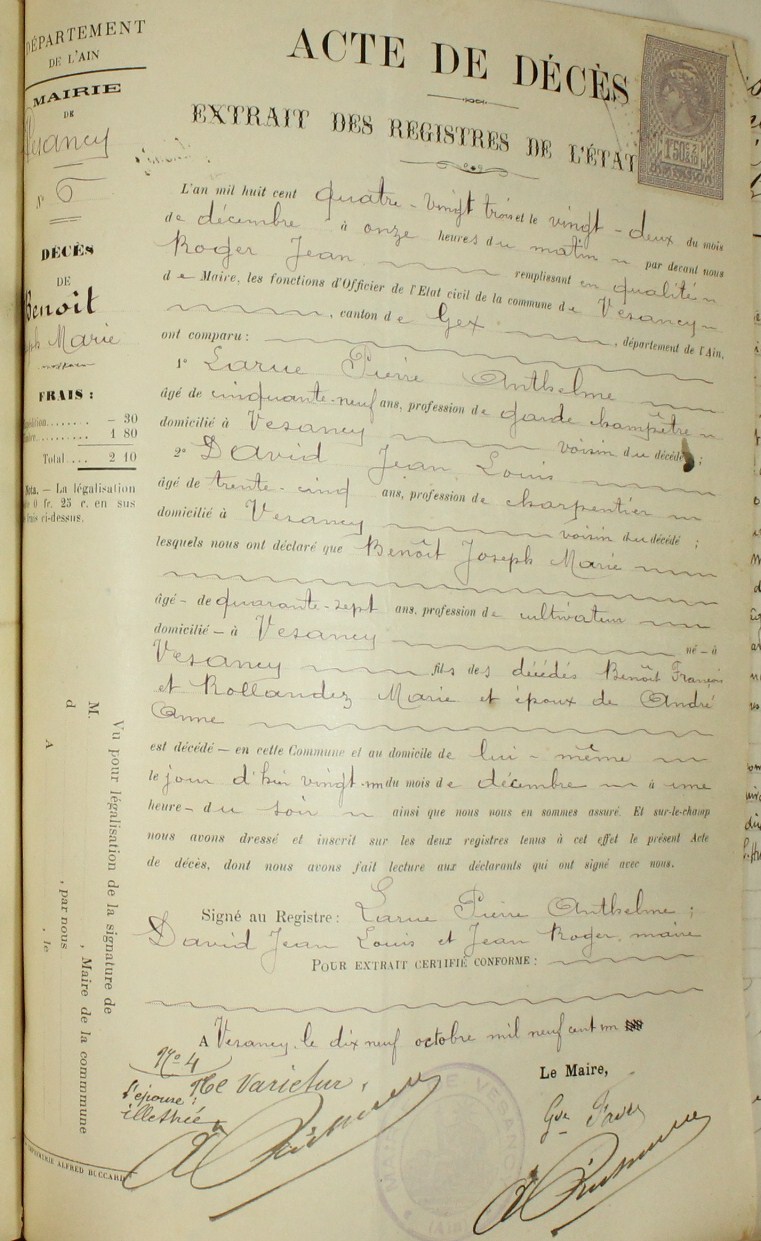 DÉPARTEMENT
DE L'AIN
MAIRIE
DE
Vesancy
N° 6
DÉCÈS
DE
Benoit
Joseph Marie
FRAIS :
Expédition........ — 30
Timbre.......... 1 80
Total.... 2 10
Nota. — La légalisation
0 fr. 25 c. en sus
frais ci-dessus.
ACTE DE DÉCÈS
EXTRAIT DES REGISTRES DE L'ÉTAT
L'an mil huit cent quatre-vingt trois et le vingt-deux du mois
de décembre à onze heures du matin par devant nous
Roger Jean remplissant en qualité
de Maire, les fonctions d'Officier de l'Etat civil de la commune de Vesancy
, canton de Gex , département de l'Ain.
ont comparu :
1° Larue Pierre Anthelme
âgé de cinquante-neuf ans, profession de garde champêtre
domicilié à Vesancy voisin du décédé ;
2° David Jean Louis
âgé de trente-cinq ans, profession de charpentier
domicilié à Vesancy voisin du décédé ;
lesquels nous ont déclaré que Benoît Joseph Marie
âgé — de quarante-sept ans, profession de cultivateur
domicilié — à Vesancy né — à
Vesancy fils des décédés Benoît François
et Rollandez Marie et époux de André
Anne
est décédé — en cette Commune et au domicile de lui-même
le jour d'hier vingt-un du mois de décembre à une
heure — du soir ainsi que nous nous en sommes assuré. Et sur-le-champ
nous avons dressé et inscrit sur les deux registres tenus à cet effet le présent Acte
de décès, dont nous avons fait lecture aux déclarants qui ont signé avec nous.
Signé au Registre : Larue Pierre Anthelme ;
David Jean Louis et Jean Roger, maire
POUR EXTRAIT CERTIFIÉ CONFORME :
A Vesancy, le dix neuf octobre mil neuf cent un
Le Maire,
N° 4
Ne Varietur,
l'épouse :
illettrée
Vu pour légalisation de la signature de
M. , Maire de la commune
d , par nous
A , le
IMPRIMERIE ALFRED DUCCARD
1F50c